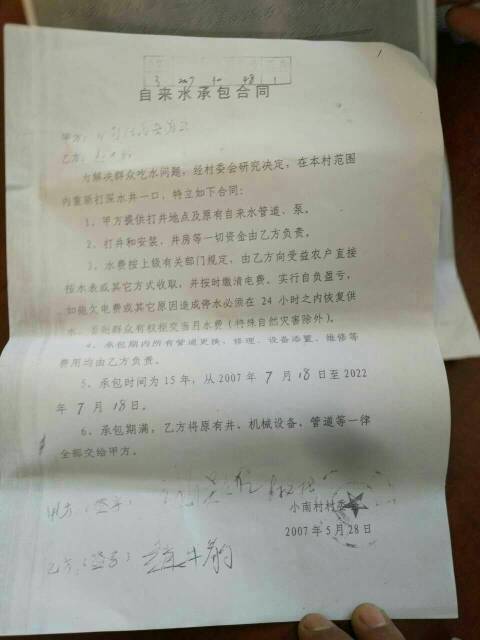 1
3
自来水承包合同
甲方：
乙方：
为解决群众吃水问题，经村委会研究决定，在本村范围
内重新打深水井一口，特立如下合同：
1、甲方提供打井地点及原有自来水管道、泵。
2、打井和安装、井房等一切资金由乙方负责。
3、水费按上级有关部门规定，由乙方向受益农户直接
按水表或其它方式收取，并按时缴清电费。实行自负盈亏，
如拖欠电费或其它原因造成停水必须在 24 小时之内恢复供
水，否则群众有权拒交当月水费（特殊自然灾害除外）。
4、承包期内所有管道更换、修理、设备添置、维修等
费用均由乙方负责。
5、承包时间为 15 年，从 2007 年 7 月 18 日至 2022
年 7 月 18 日。
6、承包期满，乙方将原有井、机械设备、管道等一律
全部交给甲方。
甲方（签字）
小南村村委会
2007 年 5 月 28 日
乙方（签字）